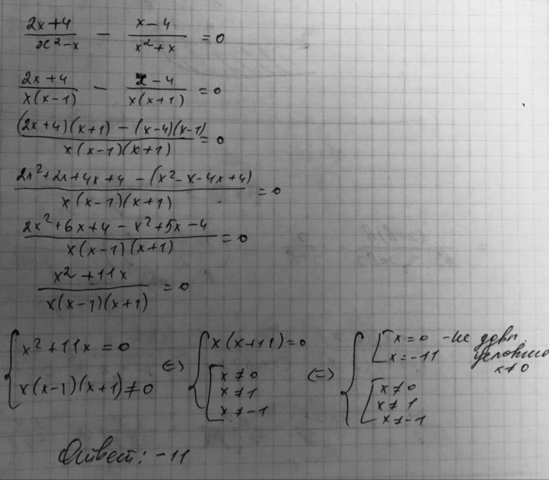 (2x+4)/(x²-x) - (x-4)/(x²+x) = 0
(2x+4)/(x(x-1)) - (x-4)/(x(x+1)) = 0
((2x+4)(x+1) - (x-4)(x-1))/(x(x-1)(x+1)) = 0
(2x²+2x+4x+4 - (x²-x-4x+4))/(x(x-1)(x+1)) = 0
(2x²+6x+4-x²+5x-4)/(x(x-1)(x+1)) = 0
(x²+11x)/(x(x-1)(x+1)) = 0
{ x²+11x=0 ; x(x-1)(x+1)≠0 ⇔ { x(x+11)=0 ; [ x≠0 x≠1 x≠-1 ⇔ { [ x=0 - не удовл условию x≠0 x=-11 ; [ x≠0 x≠1 x≠-1
Ответ: -11